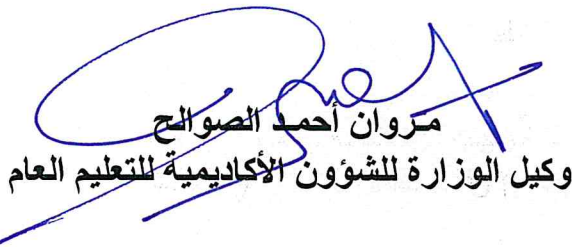 مروان أحمد الصوالح
وكيل الوزارة للشؤون الأكاديمية للتعليم العام